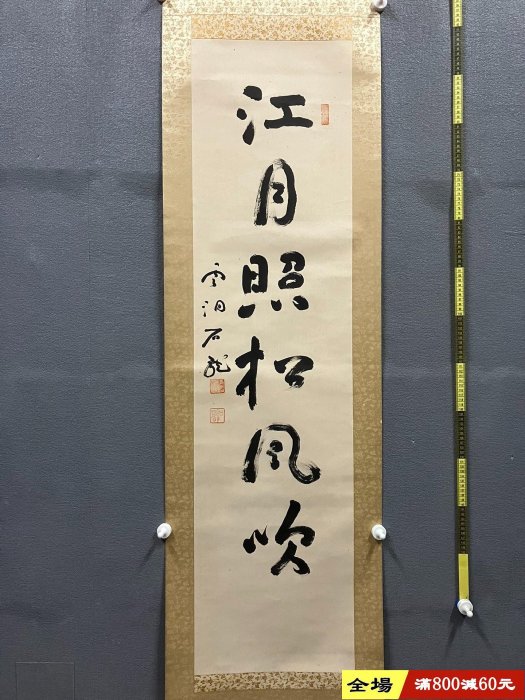 江月照松風吹
雲洞石龍
全場
滿800減60元